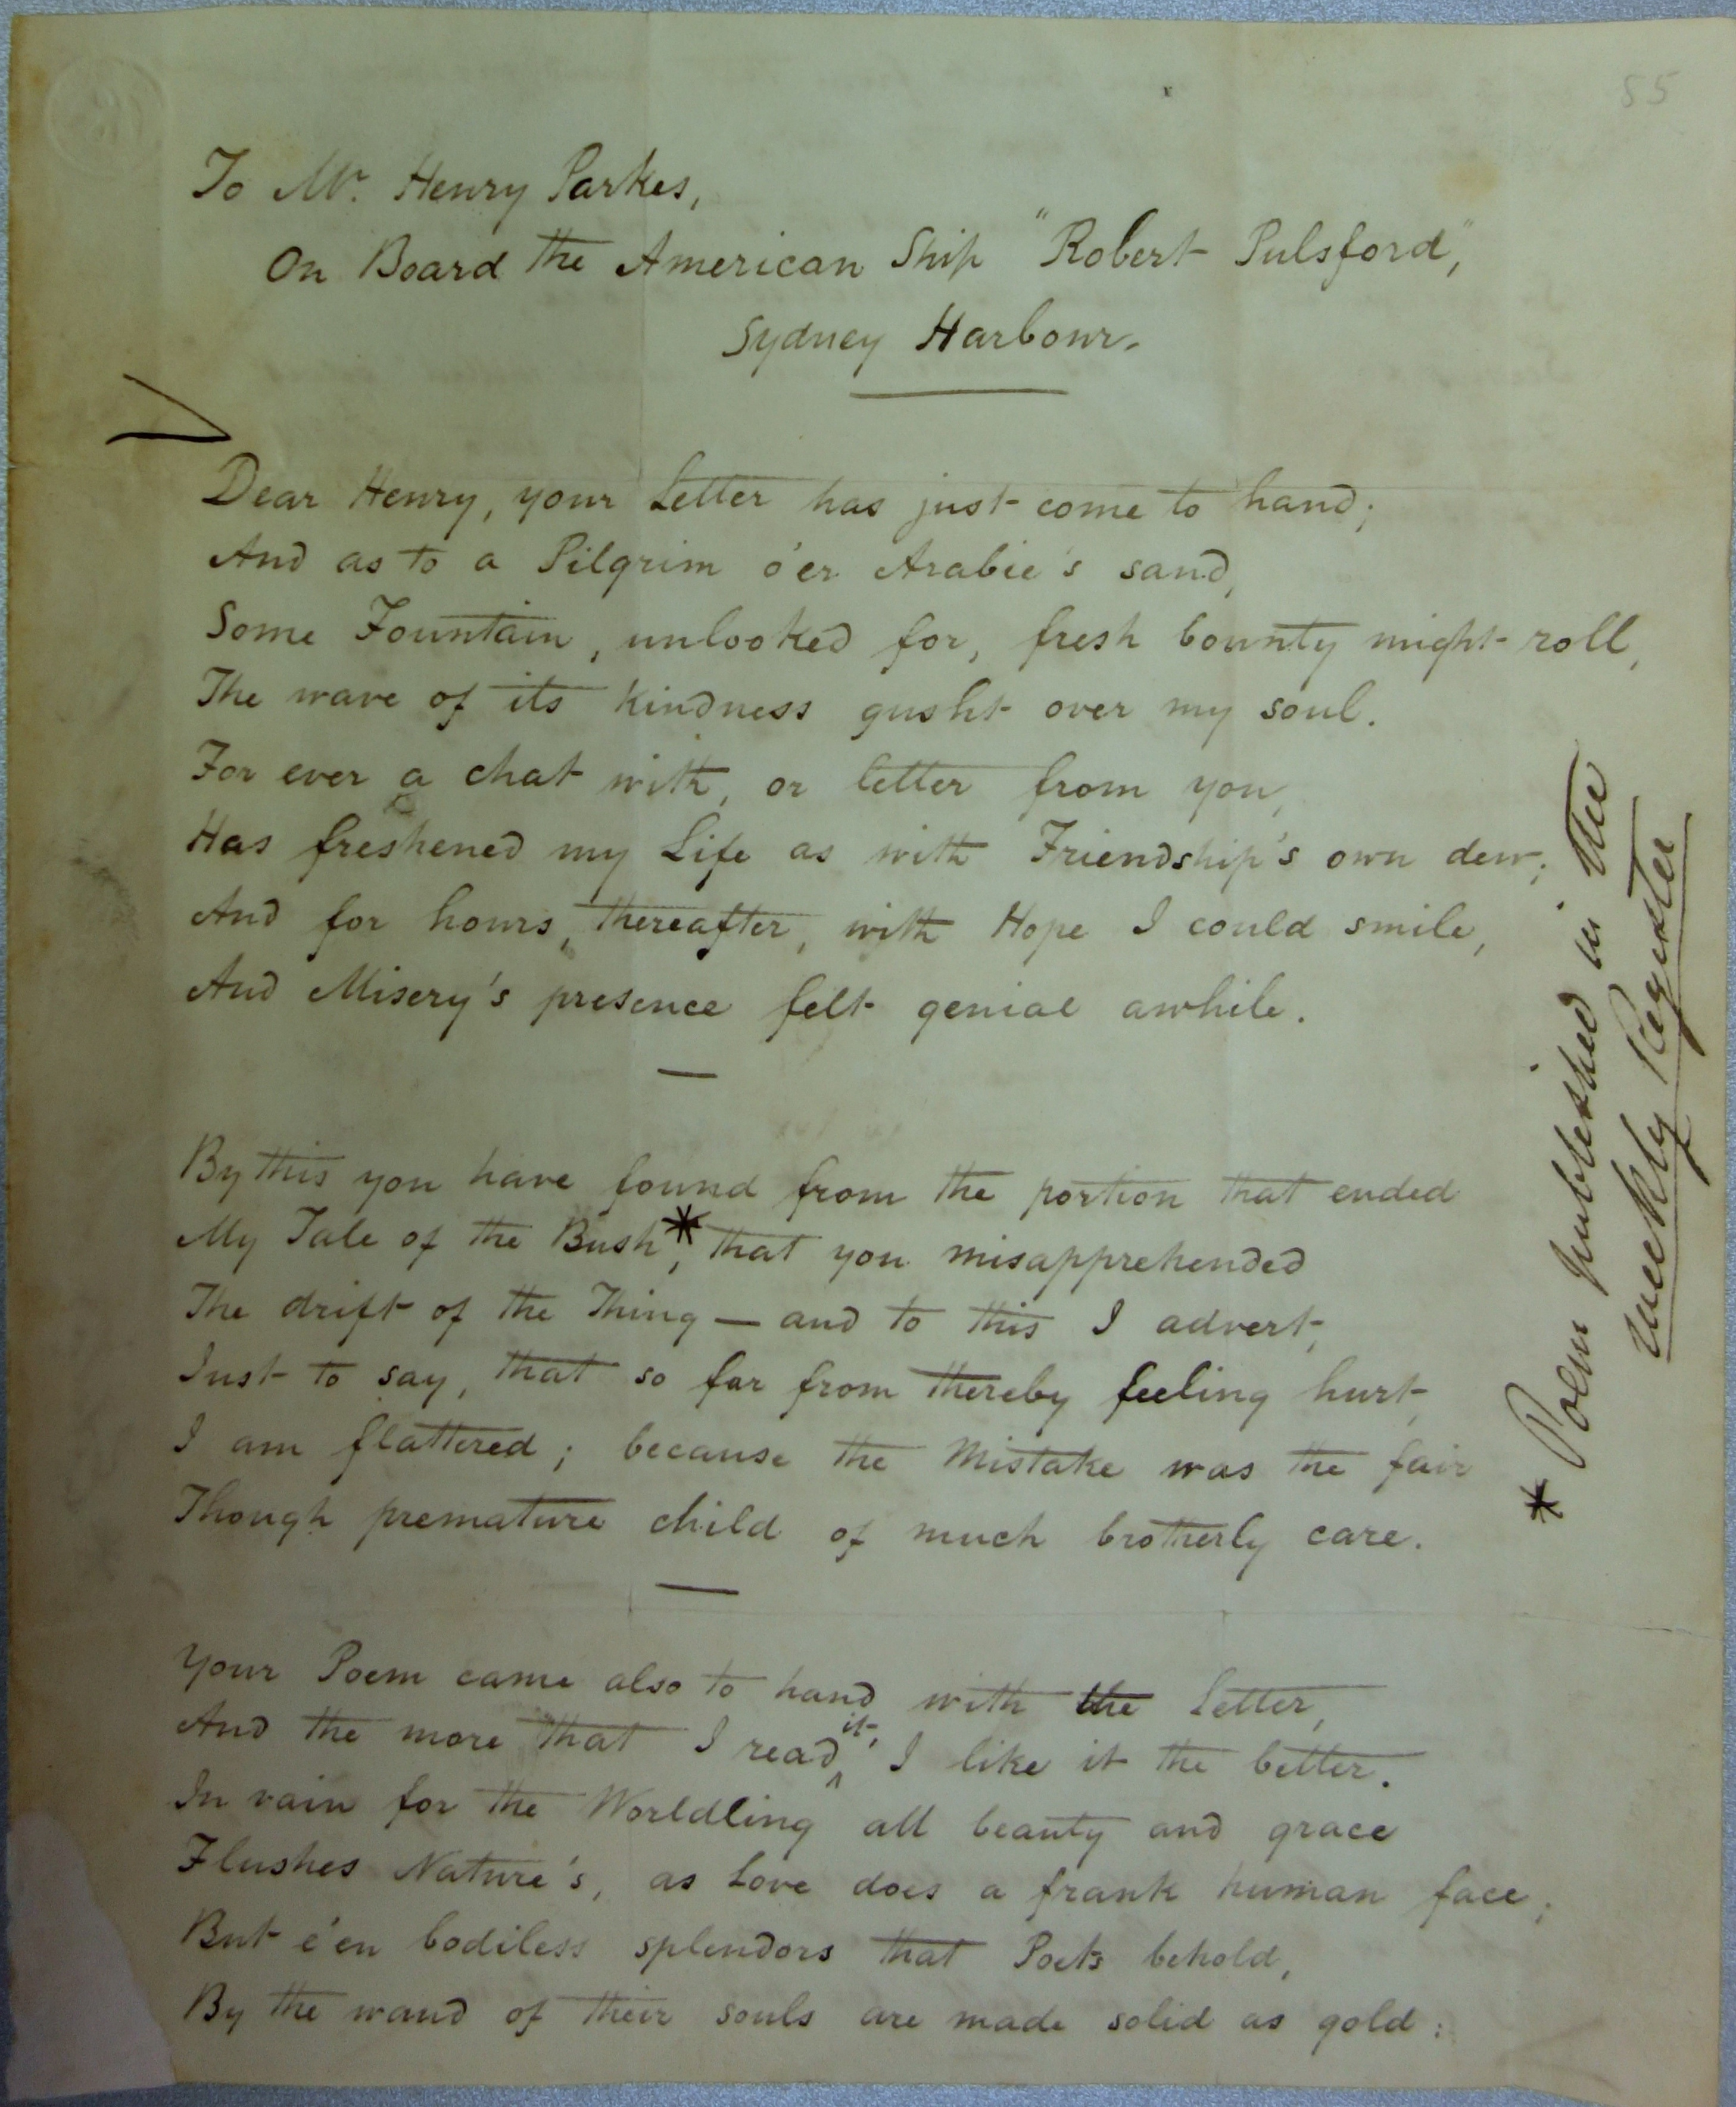 55
To Mr. Henry Parkes,
On Board the American Ship "Robert Pulsford",
Sydney Harbour.
Dear Henry, your Letter has just come to hand;
And as to a Pilgrim o'er Arabie's sand,
Some Fountain, unlooked for, fresh bounty might roll,
The wave of its kindness gusht over my soul.
For ever a chat with, or letter from you,
Has freshened my Life as with Friendship's own dew;
And for hours, thereafter, with Hope I could smile,
And Misery's presence felt genial awhile.
By this you have found from the portion that ended
My Tale of the Bush*, that you misapprehended
The drift of the Thing — and to this I advert,
Just to say, that so far from thereby feeling hurt,
I am flattered; because the Mistake was the fair
Though premature child of much brotherly care.
Your Poem came also to hand with the Letter,
And the more that I read it, I like it the better.
In vain for the Worldling all beauty and grace
Flushes Nature's, as Love does a frank human face;
But e'en bodiless splendors that Poets behold,
By the wand of their souls are made solid as gold:
* Poem published in the
Weekly Register